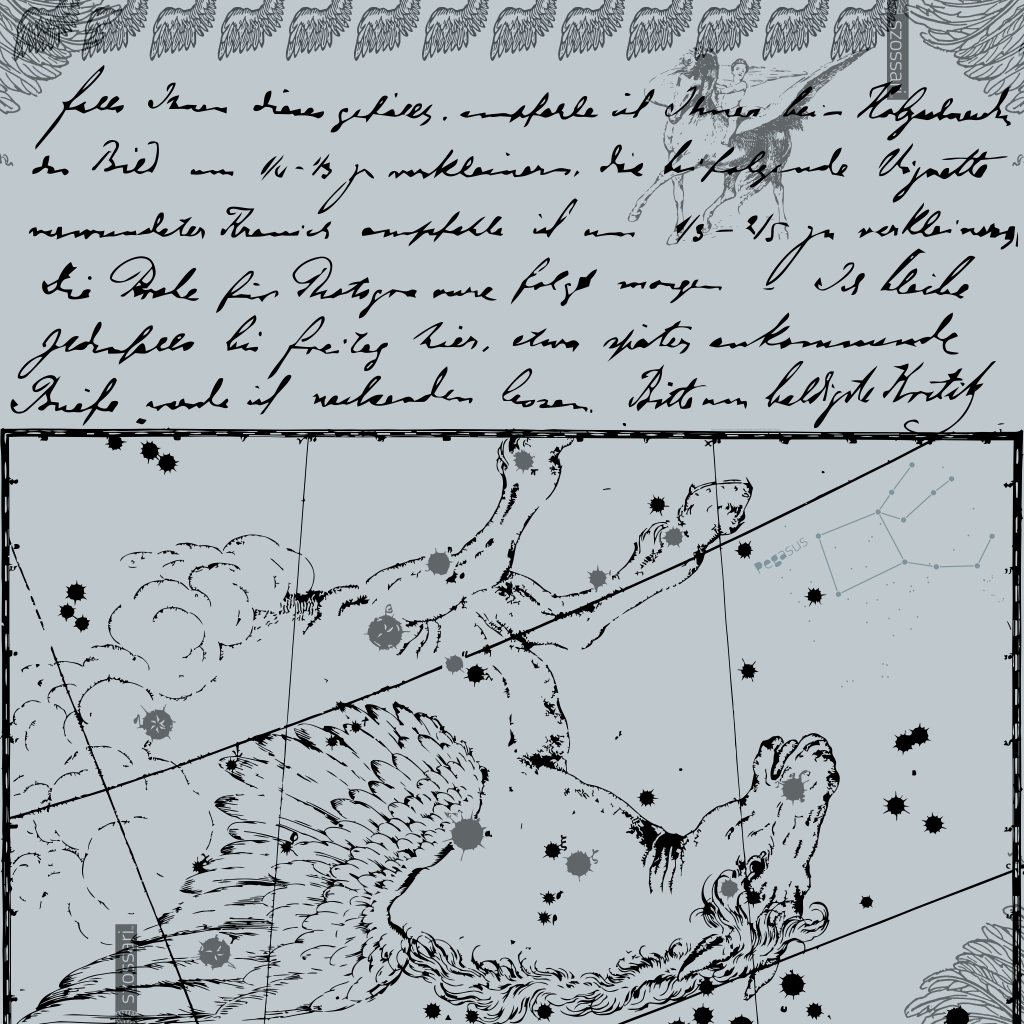 szossa
falls Ihnen dieses gefällt, empfehle ich Ihnen beim Holzschneiden
das Bild um 1/4 - 1/3 zu verkleinern, die beifolgende Vignette
verwundeter Kranich empfehle ich um 1/3 - 2/5 zu verkleinern,
Die Probe für Photogravure folgt morgen - Ich bleibe
Jedenfalls bis freitag hier, etwa später ankommende
Briefe werde ich nachsenden lassen. Bitte um baldigste Kritik
Pegasus
szossari